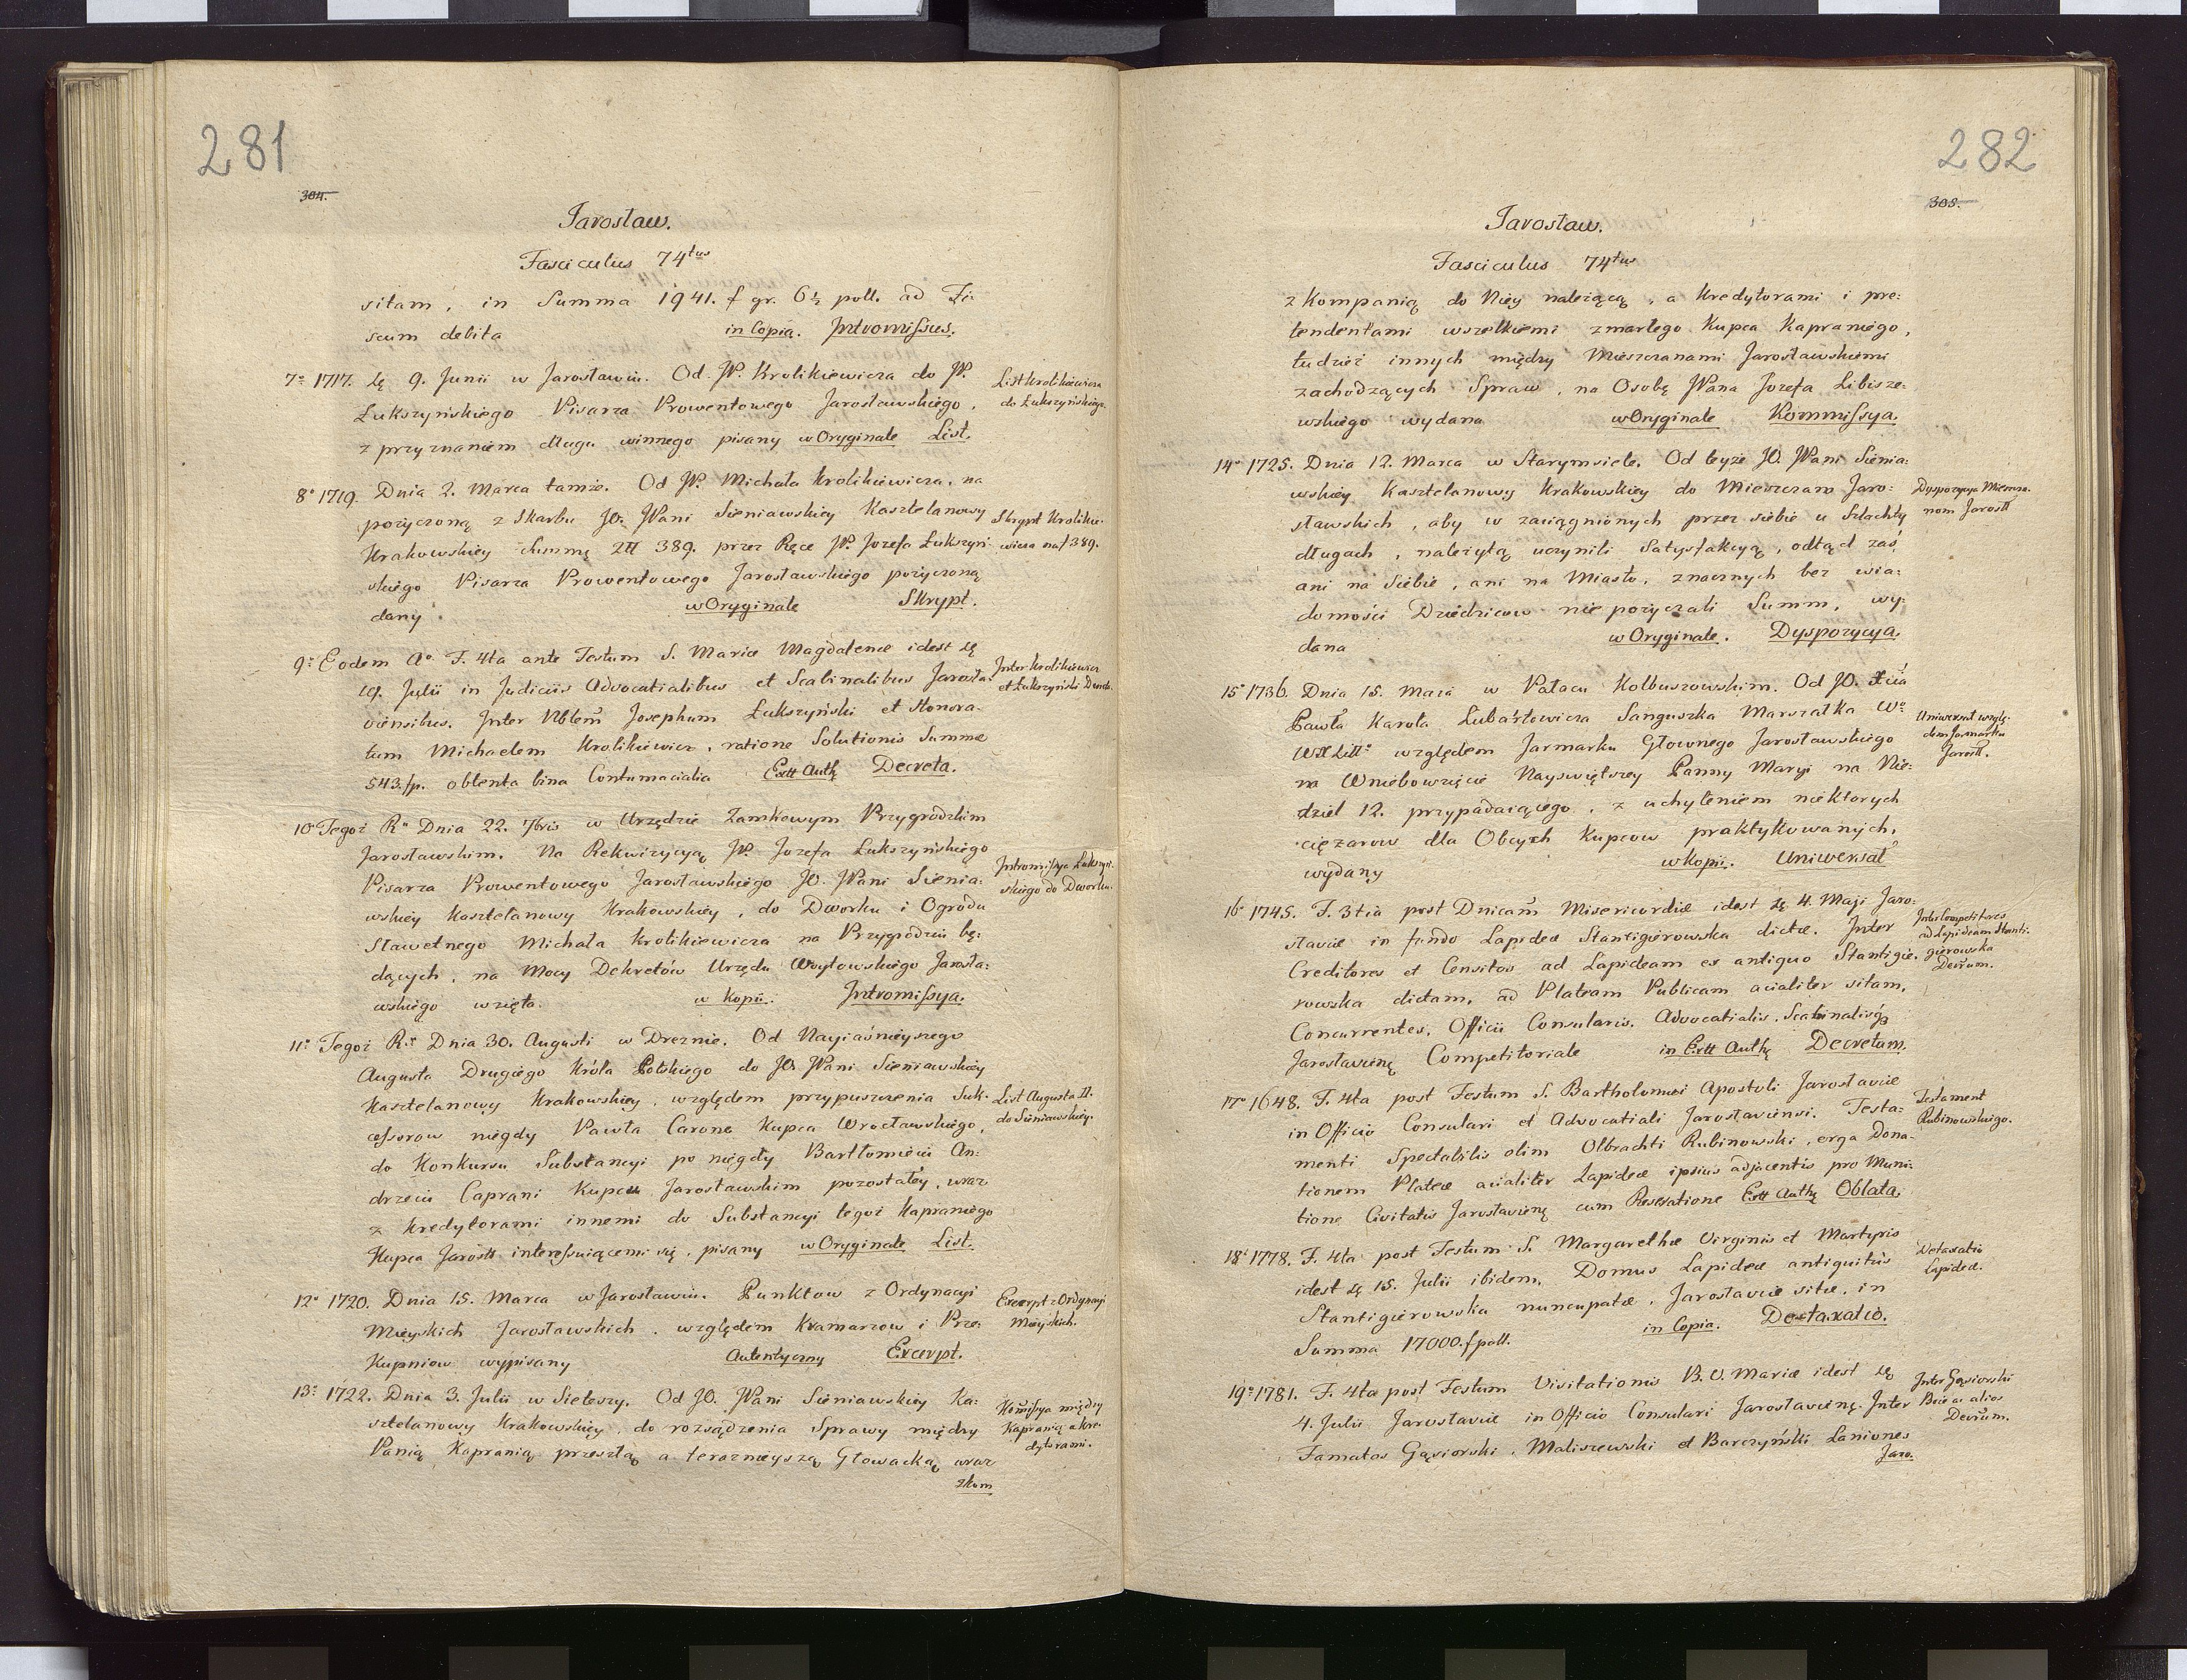 281
304.
Jarosław.
Fasciculus 74tus
sitam, in Summa 1941. f gr. 6½ poll. ad Fi:
scum debita in Copia. Intromissus.
7º 1717. dę 9. Junii w Jarosławiu. Od JP. Krolikiewicza do JP.
Łukszyńskiego Pisarza Prowentowego Jarosławskiego,
z przyznaniem długu winnego pisany w Oryginale List.
List Krolikiewicza
do Łukszyńskiego.
8º 1719. Dnia 2. Marca tamże. Od JP. Michała Krolikiewicza, na
pożyczoną z Skarbu JO. JPani Sieniawskiey Kasztelanowy
Krakowskiey Summę Złł 389. przez Ręce JP. Jozefa Łukszyń:
skiego Pisarza Prowentowego Jarosławskiego pożyczoną
dany. w Oryginale Skrypt.
Skrypt Krolikie:
wicza na f 389.
9º Eodem Aº F. 4ta ante Festum S. Mariæ Magdalenæ idest dę
19. Julii in Judiciis Advocatialibus et Scabinalibus Jarosła:
viensibus. Inter Nblem Josephum Łukszyński et Honora:
tum Michaelem Krolikiewicz, ratione Solutionis Summæ
543. fp. obtenta bina Contumacialia Extt Authę Decreta.
Inter Krolikiewicz
et Łukszyński Decreta.
10º Tegoż Rº Dnia 22. 7bris w Urzędzie Zamkowym Przygrodzkim
Jarosławskim. Na Rekwizycyą JP. Jozefa Łukszyńskiego
Pisarza Prowentowego Jarosławskiego JO. JPani Sienia:
wskiey Kasztelanowy Krakowskiey, do Dworku i Ogrodu
Sławetnego Michała Krolikiewicza na Przygrodziu bę:
dących, na Mocy Dekretów Urzędu Woytowskiego Jarosła:
wskiego wzięta. w Kopii. Intromissya.
Intromissya Łukszyń:
skiego do Dworku.
11º Tegoż Rº Dnia 30. Augusti w Dreznie. Od Nayiaśnieyszego
Augusta Drugiego Króla Polskiego do JO. JPani Sieniawskiey
Kasztelanowy Krakowskiey, względem przypuszczenia Suk:
cessorow niegdy Pawła Carone Kupca Wrocławskiego,
do Konkursu Substancyi po niegdy Bartłomieiu An:
drzeiu Caprani Kupcu Jarosławskim pozostałey, wraz
z Kredytorami innemi do Substancyi tegoż Kapraniego
Kupca Jarosłł interessuiącemi się, pisany w Oryginale List.
List Augusta II.
do Sieniawskiey.
12º 1720. Dnia 15. Marca w Jarosławiu. Punktow z Ordynacyi
Mieyskich Jarosławskich, względem Kramarzow i Prze:
Kupniow wypisany Autentyczny Excerpt.
Excerpt z Ordynacyi
Mieyskich.
13º 1722. Dnia 3. Julii w Sieteszy. Od JO. JPani Sieniawskiey Ka:
sztelanowy Krakowskiey, do rozsądzenia Sprawy między
Panią Kapranią przeszłą a teraznieyszą Głowacką wraz
zkom
Komissya między
Kapranią a kre:
dytorami.
282
305.
Jarosław.
Fasciculus 74tus
z Kompanią do Niey należącą, a Kredytorami i pre:
tendentami wszelkiemi zmarłego Kupca Kapraniego,
tudzież innych między Mieszczanami Jarosławskiemi
zachodzących Spraw, na Osobę JPana Jozefa Libisze:
wskiego wydana w Oryginale Kommissya.
14º 1725. Dnia 12. Marca w Starymsiele. Od teyże JO. JPani Sienia:
wskiey Kasztelanowy Krakowskiey do Mieszczan Jaro:
sławskich, aby w zaciągnionych przez siebie u Szlachty
długach, należytą uczynili Satysfakcyą, odtąd zaś
ani na Siebie, ani na Miasto, znacznych bez wia:
domości Dziedzicow nie pożyczali Summ, wy:
dana w Oryginale. Dyspozycya.
Dyspozycya Mieszcza:
nom Jarosłł
15º 1736. Dnia 15. Maia w Pałacu Kolbuszowskim. Od JO. Xcia
Pawła Karola Lubartowicza Sanguszka Marszałka Wº
WXLittº względem Jarmarku Głownego Jarosławskiego
na Wniebowzięcie Nayświętszey Panny Maryi na Nie:
dziel 12. przypadaiącego, z uchyleniem niektorych
ciężarow dla Obcych Kupcow praktykowanych,
wydany w Kopii. Uniwersał
Uniwersał wzglę:
dem Jarmarku
Jarosłł.
16º 1745. F. 3tia post Dnicam Misericordiæ idest dę 4. Maji Jaro:
slaviæ in fundo Lapideæ Stantigierowska dictæ. Inter
Creditores et Censitos ad Lapideam ex antiquo Stantigie:
rowska dictam, ad Plateam Publicam acialiter sitam,
Concurrentes, Officii Consularis, Advocatialis, Scabinalisqz
Jaroslavienę Competitoriale in Extt Authę Decretum.
Inter Competitores
ad Lapideam Stanti:
gierowska
Decrum.
17º 1648. F. 4ta post Festum S. Bartholomæi Apostoli Jaroslaviæ
in Officio Consulari et Advocatiali Jaroslaviensi. Testa:
menti Spectabilis olim Olbrachti Rubinowski, erga Dona:
tionem Plateæ acialiter Lapideæ ipsius adjacentis pro Muni:
tione Civitatis Jaroslavienę cum Reservatione Extt Authę Oblata.
Testament
Rubinowskiego.
18º 1778. F. 4ta post Festum S. Margarethæ Virginis et Martyris
idest dę 15. Julii ibidem. Domus Lapideæ antiquitùs
Stantigierowska nuncupatæ, Jaroslaviæ sitæ, in
Summa 17000. f poll. in Copia. Detaxatio.
Detaxatio
Lapideæ.
19º 1781. F. 4ta post Festum Visitationis B. V. Mariæ idest dę
4. Julii Jaroslaviæ in Officio Consulari Jaroslavienę. Inter
Famatos Gąsiorski, Maliszewski et Barczyński Laniones
Jaro.
Inter Gąsiorski
ac alios
Decrum.